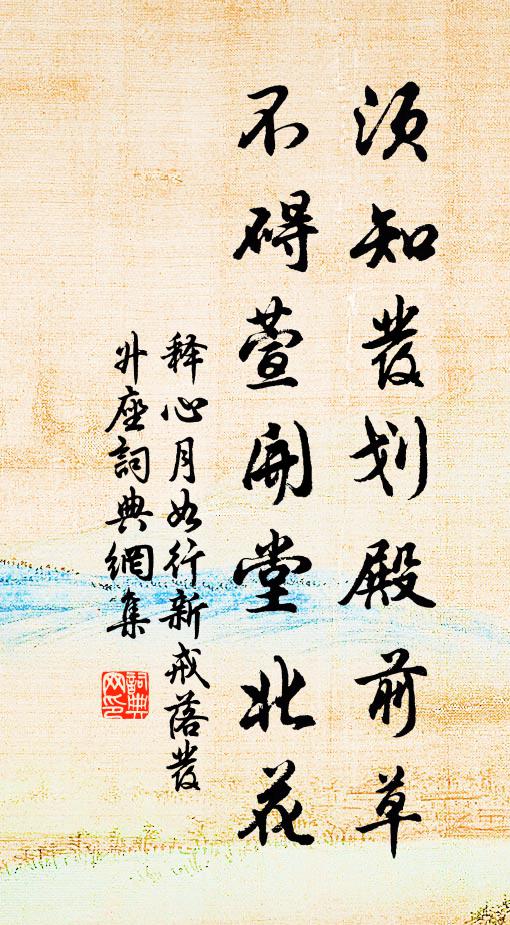 须知發划殿前草
不碍萱開堂北花
释心月如行新戒落發
升座詞典網集
詞典网印